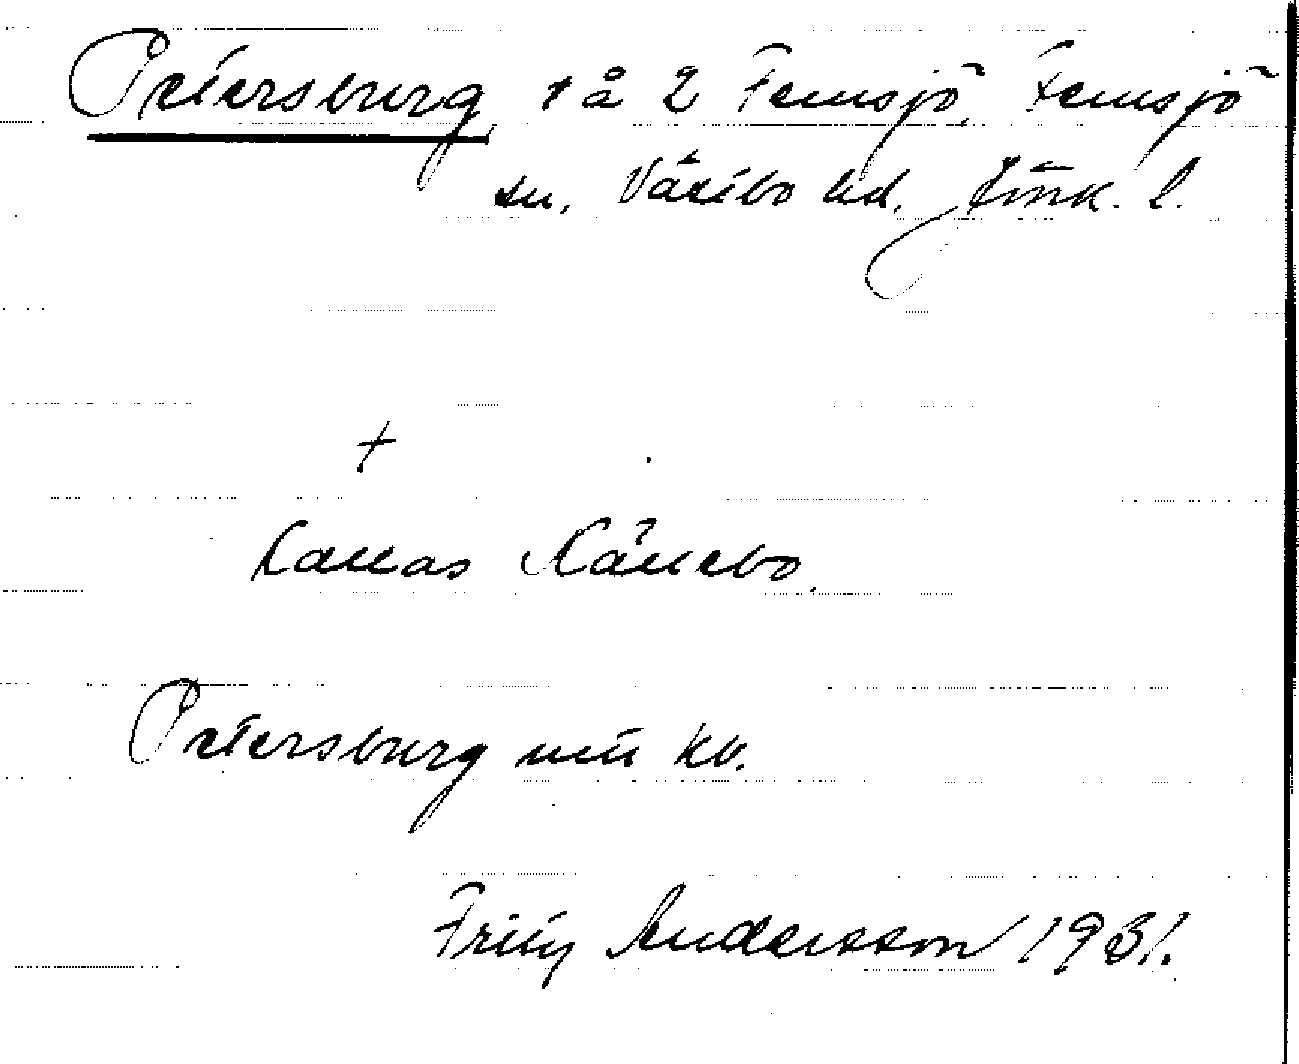 Petersburg, t å 2 Femsjö, Femsjö
sn. Västbo hd. Jönk. l.
+
Kallas Nånebo.
Petersburg utu kb.
Fritz Andersson 1931.